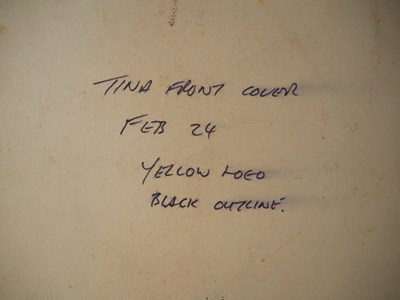 TINA FRONT COVER
FEB 24
YELLOW LOGO
BLACK OUTLINE.